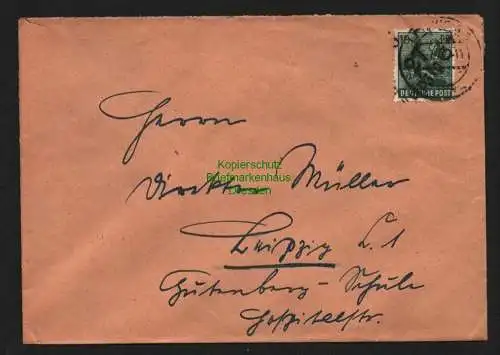 DEUTSCHE POST
Herrn
Kopierschutz
Briefmarkenhaus
Dresden
Direktor Müller
Leipzig C. 1
Gutenberg-Schule
Hospitalstr.